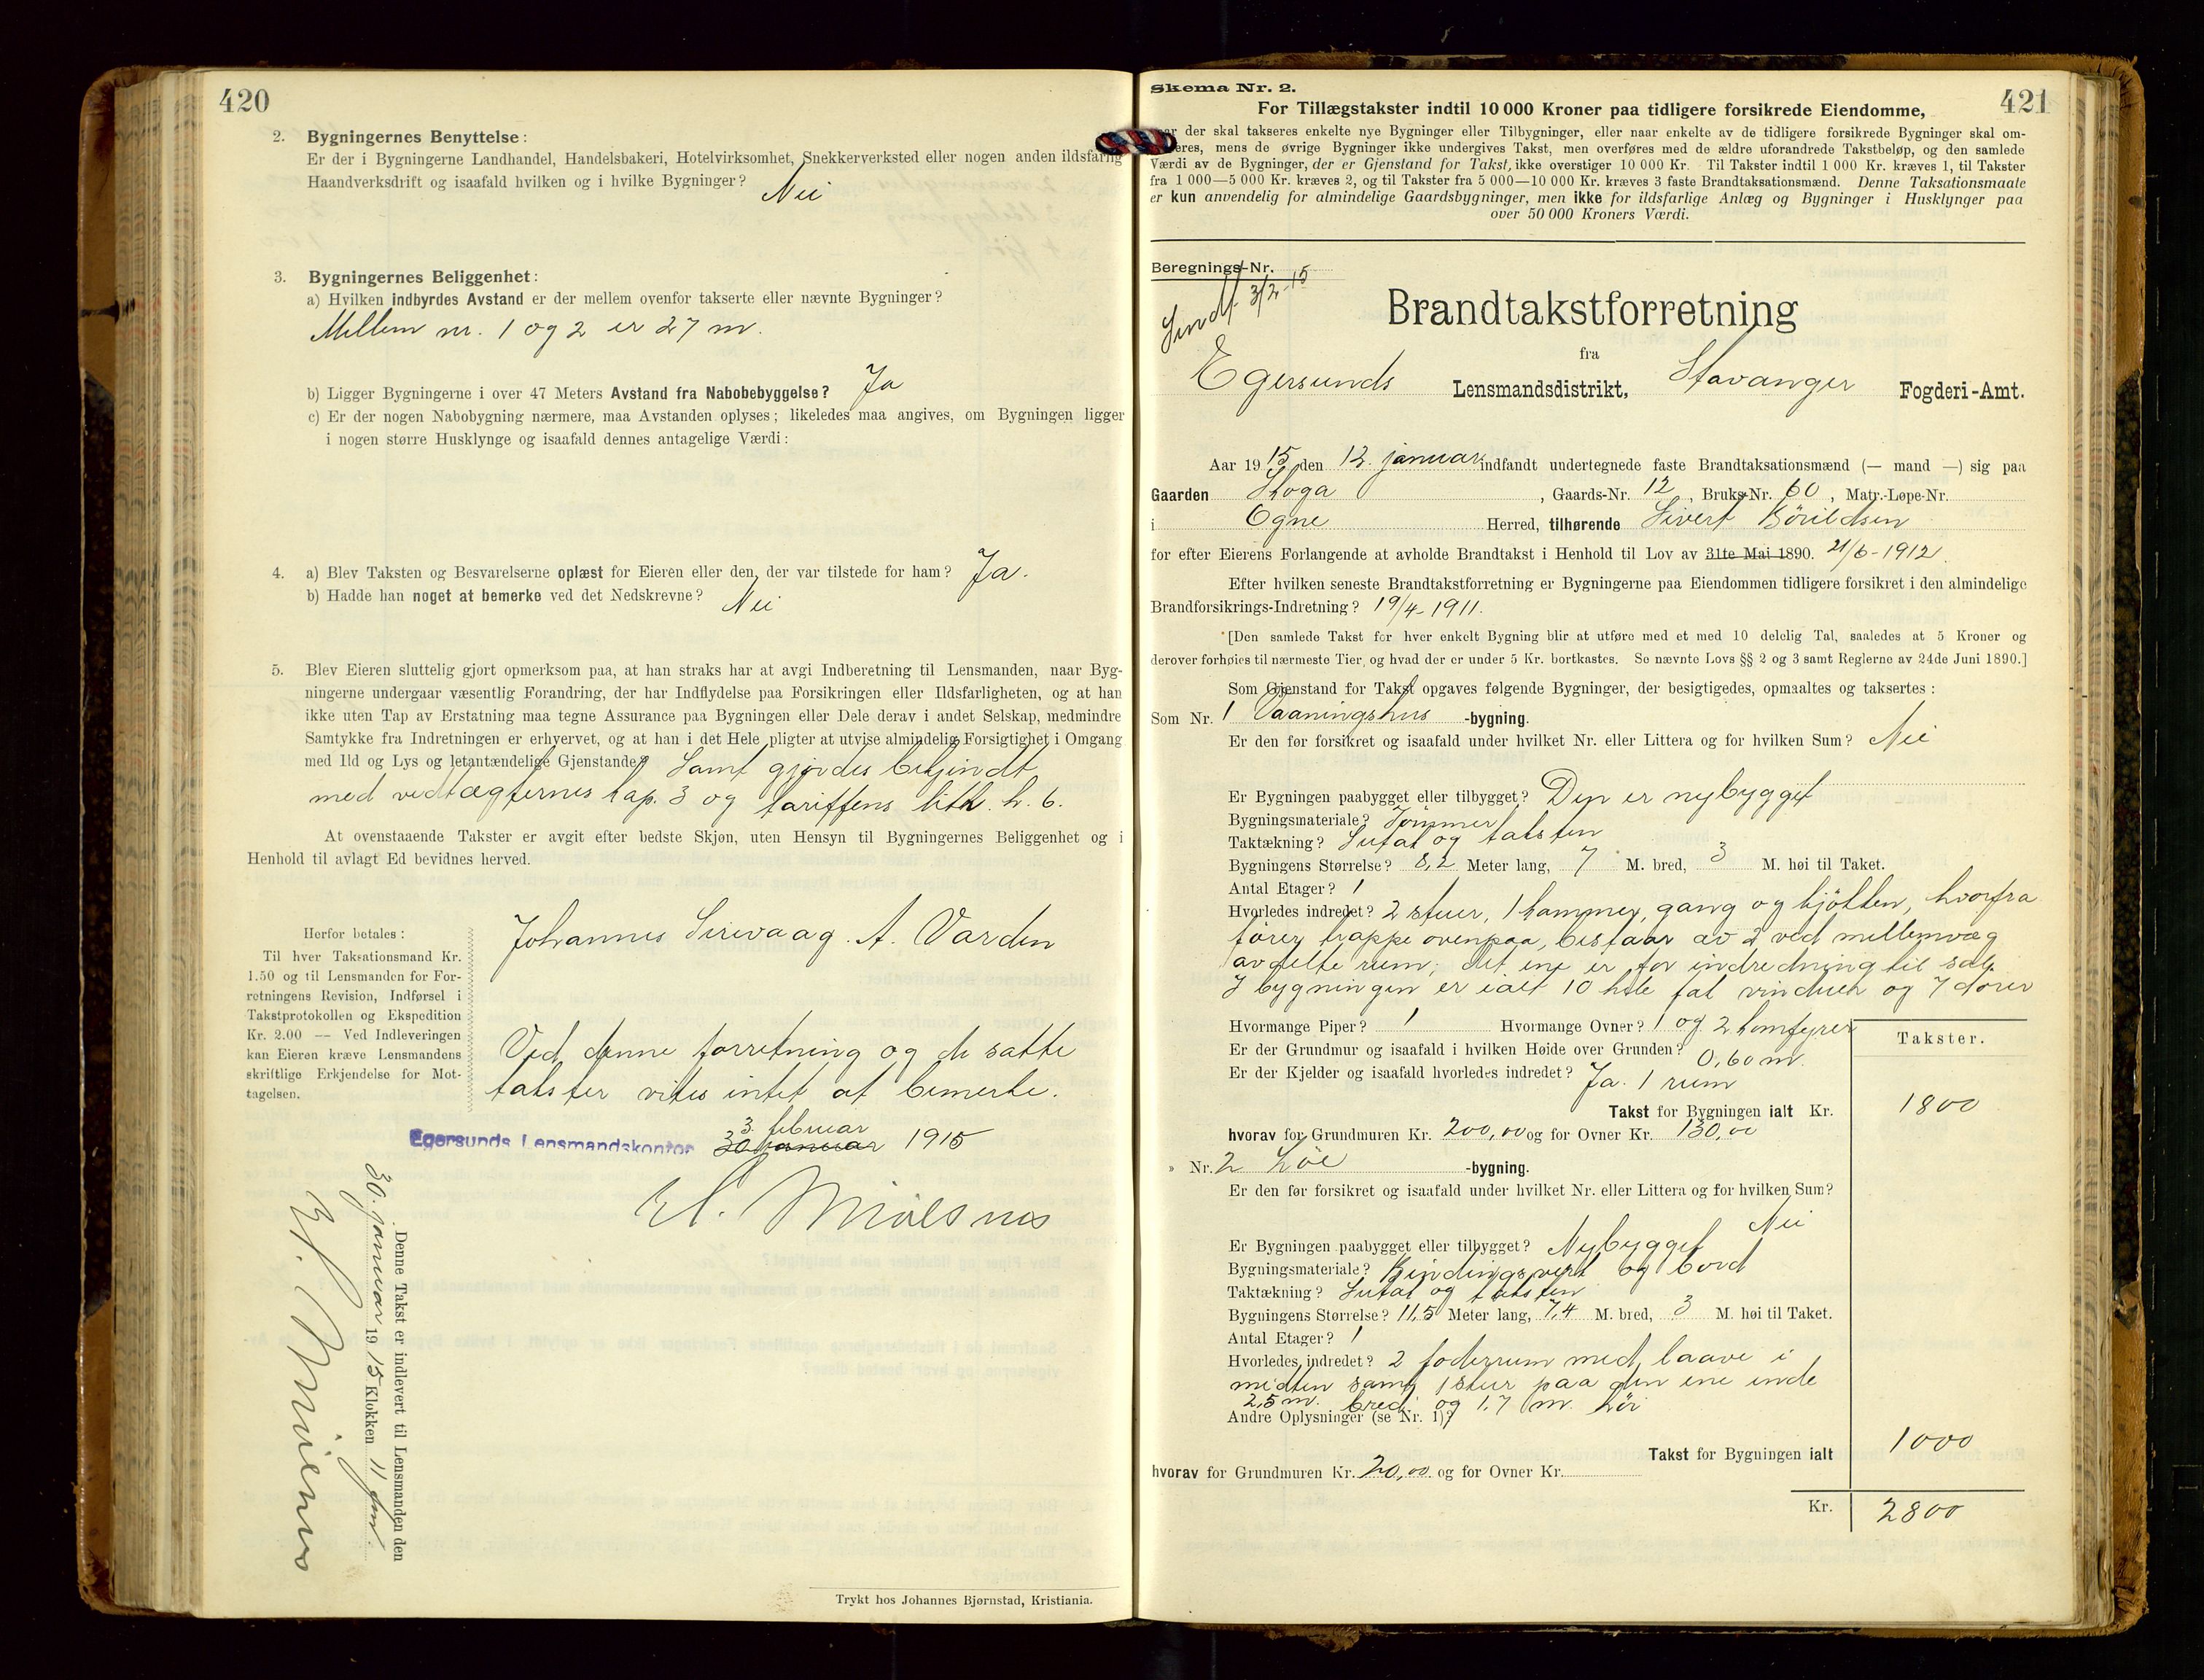 420
2. Bygningernes Benyttelse:
Er der i Bygningerne Landhandel, Handelsbakeri, Hotelvirksomhet, Snekkerverksted eller nogen anden ildsfarlig
Haandverksdrift og isaafald hvilken og i hvilke Bygninger? Nei
3. Bygningernes Beliggenhet:
a) Hvilken indbyrdes Avstand er der mellem ovenfor takserte eller nævnte Bygninger?
Mellem nr. 1 og 2 er 27 m.
b) Ligger Bygningerne i over 47 Meters Avstand fra Nabobebyggelse? Ja
c) Er der nogen Nabobygning nærmere, maa Avstanden oplyses; likeledes maa angives, om Bygningen ligger
i nogen større Husklynge og isaafald dennes antagelige Værdi:
4. a) Blev Taksten og Besvarelserne oplæst for Eieren eller den, der var tilstede for ham? Ja.
b) Hadde han noget at bemerke ved det Nedskrevne? Nei
5. Blev Eieren sluttelig gjort opmerksom paa, at han straks har at avgi Indberetning til Lensmanden, naar Byg-
ningerne undergaar væsentlig Forandring, der har Indflydelse paa Forsikringen eller Ildsfarligheten, og at han
ikke uten Tap av Erstatning maa tegne Assurance paa Bygningen eller Dele derav i andet Selskap, medmindre
Samtykke fra Indretningen er erhvervet, og at han i det Hele pligter at utvise almindelig Forsigtighet i Omgang
med Ild og Lys og letantændelige Gjenstande? Samt gjordes bekjendt
med vedtægternes kap. 3 og tariffens litk. h. 6.
At ovenstaaende Takster er avgit efter bedste Skjøn, uten Hensyn til Bygningernes Beliggenhet og i
Henhold til avlagt Ed bevidnes herved.
Johannes Sirevaag. A. Varden
Herfor betales:
Til hver Taksationsmand Kr.
1.50 og til Lensmanden for For-
retningens Revision, Indførsel i
Takstprotokollen og Ekspedition
Kr. 2.00 — Ved Indleveringen
kan Eieren kræve Lensmandens
skriftlige Erkjendelse for Mot-
tagelsen.
Ved denne forretning og de satte
takster vites intet at bemerke.
3. februar
Egersunds Lensmandskontor 30 januar 1915
Denne Takst er indlevert til Lensmanden den
30. januar 1915 Klokken 11 fm.
Trykt hos Johannes Bjørnstad, Kristiania.
421
Skema Nr. 2.
For Tillægstakster indtil 10 000 Kroner paa tidligere forsikrede Eiendomme,
der skal takseres enkelte nye Bygninger eller Tilbygninger, eller naar enkelte av de tidligere forsikrede Bygninger skal om-
mens de øvrige Bygninger ikke undergives Takst, men overføres med de ældre uforandrede Takstbeløp, og den samlede
Værdi av de Bygninger, der er Gjenstand for Takst, ikke overstiger 10 000 Kr. Til Takster indtil 1 000 Kr. kræves 1, til Takster
fra 1 000—5 000 Kr. kræves 2, og til Takster fra 5 000—10 000 Kr. kræves 3 faste Brandtaksationsmænd. Denne Taksationsmaate
er kun anvendelig for almindelige Gaardsbygninger, men ikke for ildsfarlige Anlæg og Bygninger i Husklynger paa
over 50 000 Kroners Værdi.
Beregnings-Nr.
Sendt 3/2-15
Brandtakstforretning
fra
Egersunds Lensmandsdistrikt, Stavanger Fogderi-Amt.
Aar 1915 den 12. januar indfandt undertegnede faste Brandtaksationsmænd (— mand —) sig paa
Gaarden Skoga, Gaards-Nr. 12, Bruks-Nr. 60, Matr.-Løpe-Nr.
i Ogne Herred, tilhørende Sivert
for efter Eierens Forlangende at avholde Brandtakst i Henhold til Lov av 31te Mai 1890. 21/6-1912.
Efter hvilken seneste Brandtakstforretning er Bygningerne paa Eiendommen tidligere forsikret i den almindelige
Brandforsikrings-Indretning? 19/4-1911.
[Den samlede Takst for hver enkelt Bygning blir at utføre med et med 10 delelig Tal, saaledes at 5 Kroner og
derover forhøies til nærmeste Tier, og hvad der er under 5 Kr. bortkastes. Se nævnte Lovs §§ 2 og 3 samt Reglerne av 24de Juni 1890.]
Som Gjenstand for Takst opgaves følgende Bygninger, der besigtigedes, opmaaltes og taksertes:
Som Nr. 1 Vaaningshus -bygning.
Er den før forsikret og isaafald under hvilket Nr. eller Littera og for hvilken Sum? Nei
Er Bygningen paabygget eller tilbygget? Den er nybygget
Bygningsmateriale? Tømmer
Taktækning? Sutak og taksten
Bygningens Størrelse? 8,2 Meter lang, 7 M. bred, 3 M. høi til Taket.
Antal Etager? 1
Hvorledes indredet? 2 stuer, 1 kammer, gang og kjökken, hvorfra
fører trappe ovenpaa, bestaar av 2 ved mellemvæg
avdelte rum; det ene er for indredning til sal.
I bygningen er ialt 10 hele fal vinduer og 7 dører
Hvormange Piper? 1 Hvormange Ovner? 1 og 2 komfyrer
Er der Grundmur og isaafald i hvilken Høide over Grunden? 0,60 m.
Er der Kjelder og isaafald hvorledes indredet? Ja. 1 rum
Takster.
Takst for Bygningen ialt Kr. 1800
hvorav for Grundmuren Kr. 200,00 og for Ovner Kr. 130,00
» Nr. 2 Löe -bygning.
Er den før forsikret og isaafald under hvilket Nr. eller Littera og for hvilken Sum?
Nei
Er Bygningen paabygget eller tilbygget? Nybygget
Bygningsmateriale? Bindingsverk og bord
Taktækning? Sutak og taksten
Bygningens Størrelse? 11,5 Meter lang, 7,4 M. bred, 3 M. høi til Taket.
Antal Etager? 1
Hvorledes indredet? 2 foderrum med laave i
midten samt 1 skur paa den ene ende
2,5 m. bred og 1,7 m. höi
Andre Oplysninger (se Nr. 1)?
Takst for Bygningen ialt 1000
hvorav for Grundmuren Kr. 20,00 og for Ovner Kr.
Kr. 2800